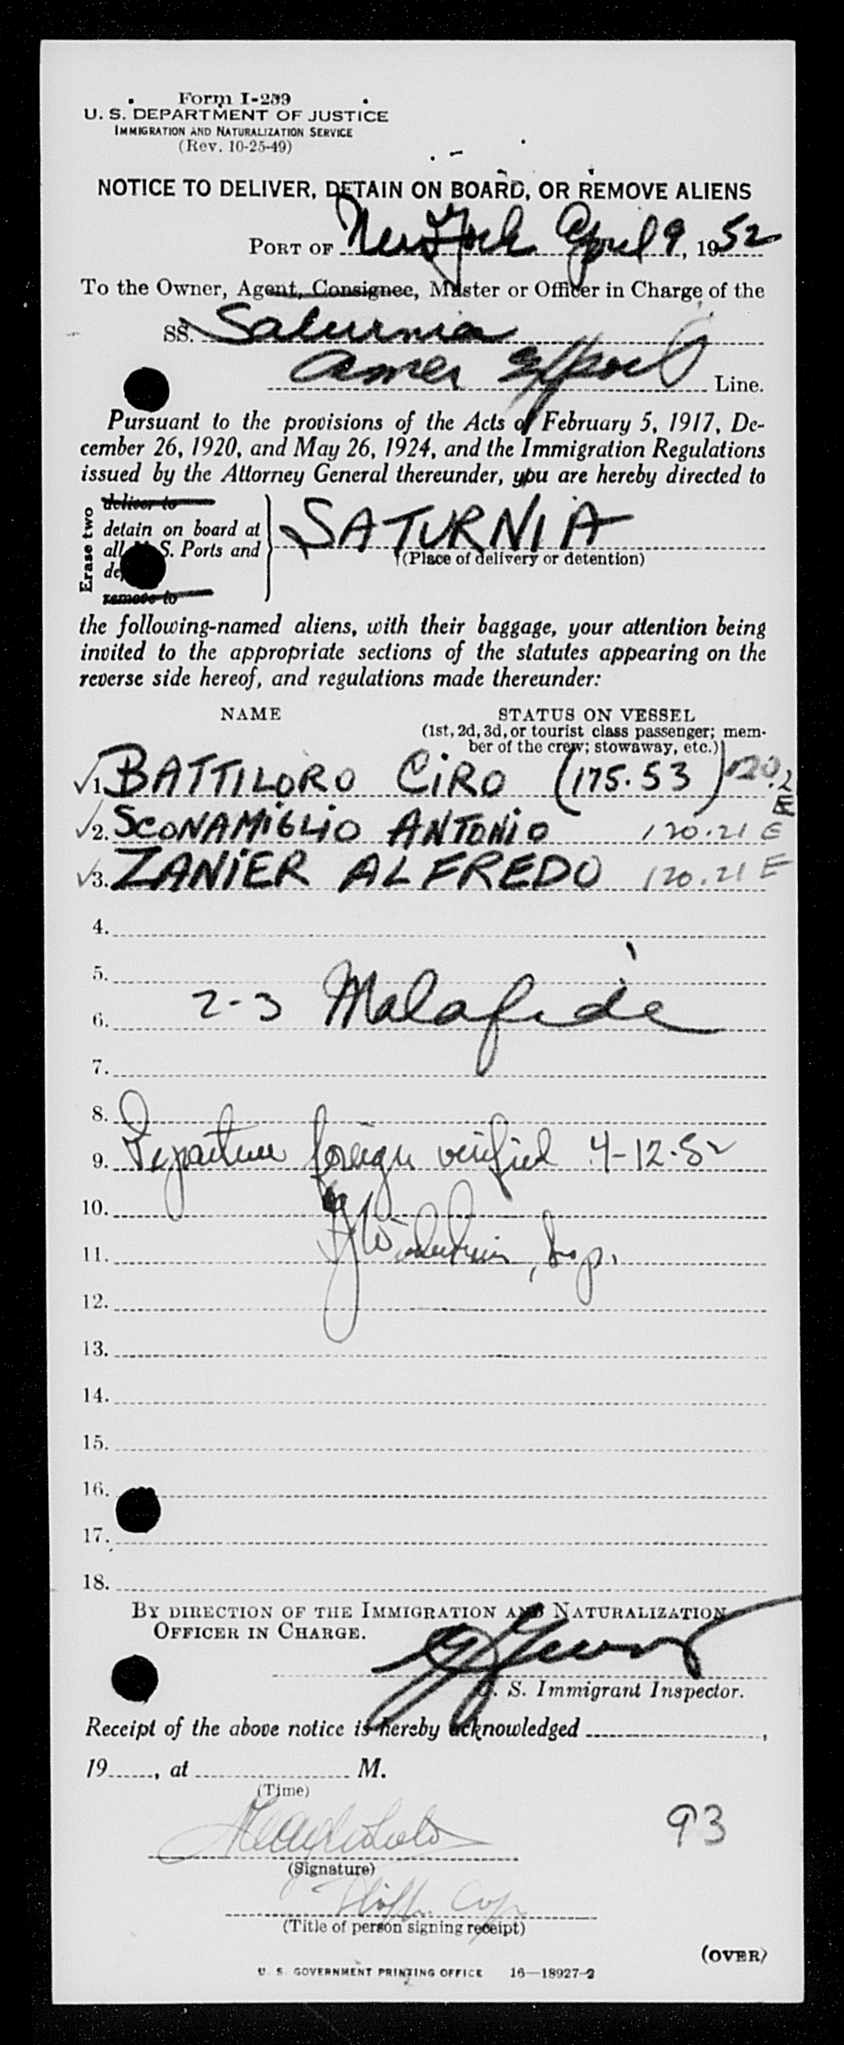 Form I-259
U. S. DEPARTMENT OF JUSTICE
IMMIGRATION AND NATURALIZATION SERVICE
(Rev. 10-25-49)
NOTICE TO DELIVER, DETAIN ON BOARD, OR REMOVE ALIENS
PORT OF New York April 9, 1952
To the Owner, Agent, Consignee, Master or Officer in Charge of the
SS. Saturnia
Amer Export Line.
Pursuant to the provisions of the Acts of February 5, 1917, De-
cember 26, 1920, and May 26, 1924, and the Immigration Regulations
issued by the Attorney General thereunder, you are hereby directed to
Erase two
deliver to
detain on board at
all U. S. Ports and
remove to
SATURNIA
(Place of delivery or detention)
the following-named aliens, with their baggage, your attention being
invited to the appropriate sections of the statutes appearing on the
reverse side hereof, and regulations made thereunder:
NAME STATUS ON VESSEL
(1st, 2d, 3d, or tourist class passenger; mem-
ber of the crew; stowaway, etc.)
✓ 1. BATTILORO CIRO (175.53) 120.2
E
✓ 2. SCONAMIGLIO ANTONIO 120.21 E
✓ 3. ZANIER ALFREDO 120.21 E
4.
5.
6. 2-3 Malafide
7.
8.
9. Departure foreign verified 4-12-52
10.
11. Insp.
12.
13.
14.
15.
16.
17.
18.
BY DIRECTION OF THE IMMIGRATION AND NATURALIZATION
OFFICER IN CHARGE.
U. S. Immigrant Inspector.
Receipt of the above notice is hereby acknowledged ,
19 , at M.
(Time)
93
(Signature)
(Title of person signing receipt)
(OVER)
U. S. GOVERNMENT PRINTING OFFICE 16—18927-2